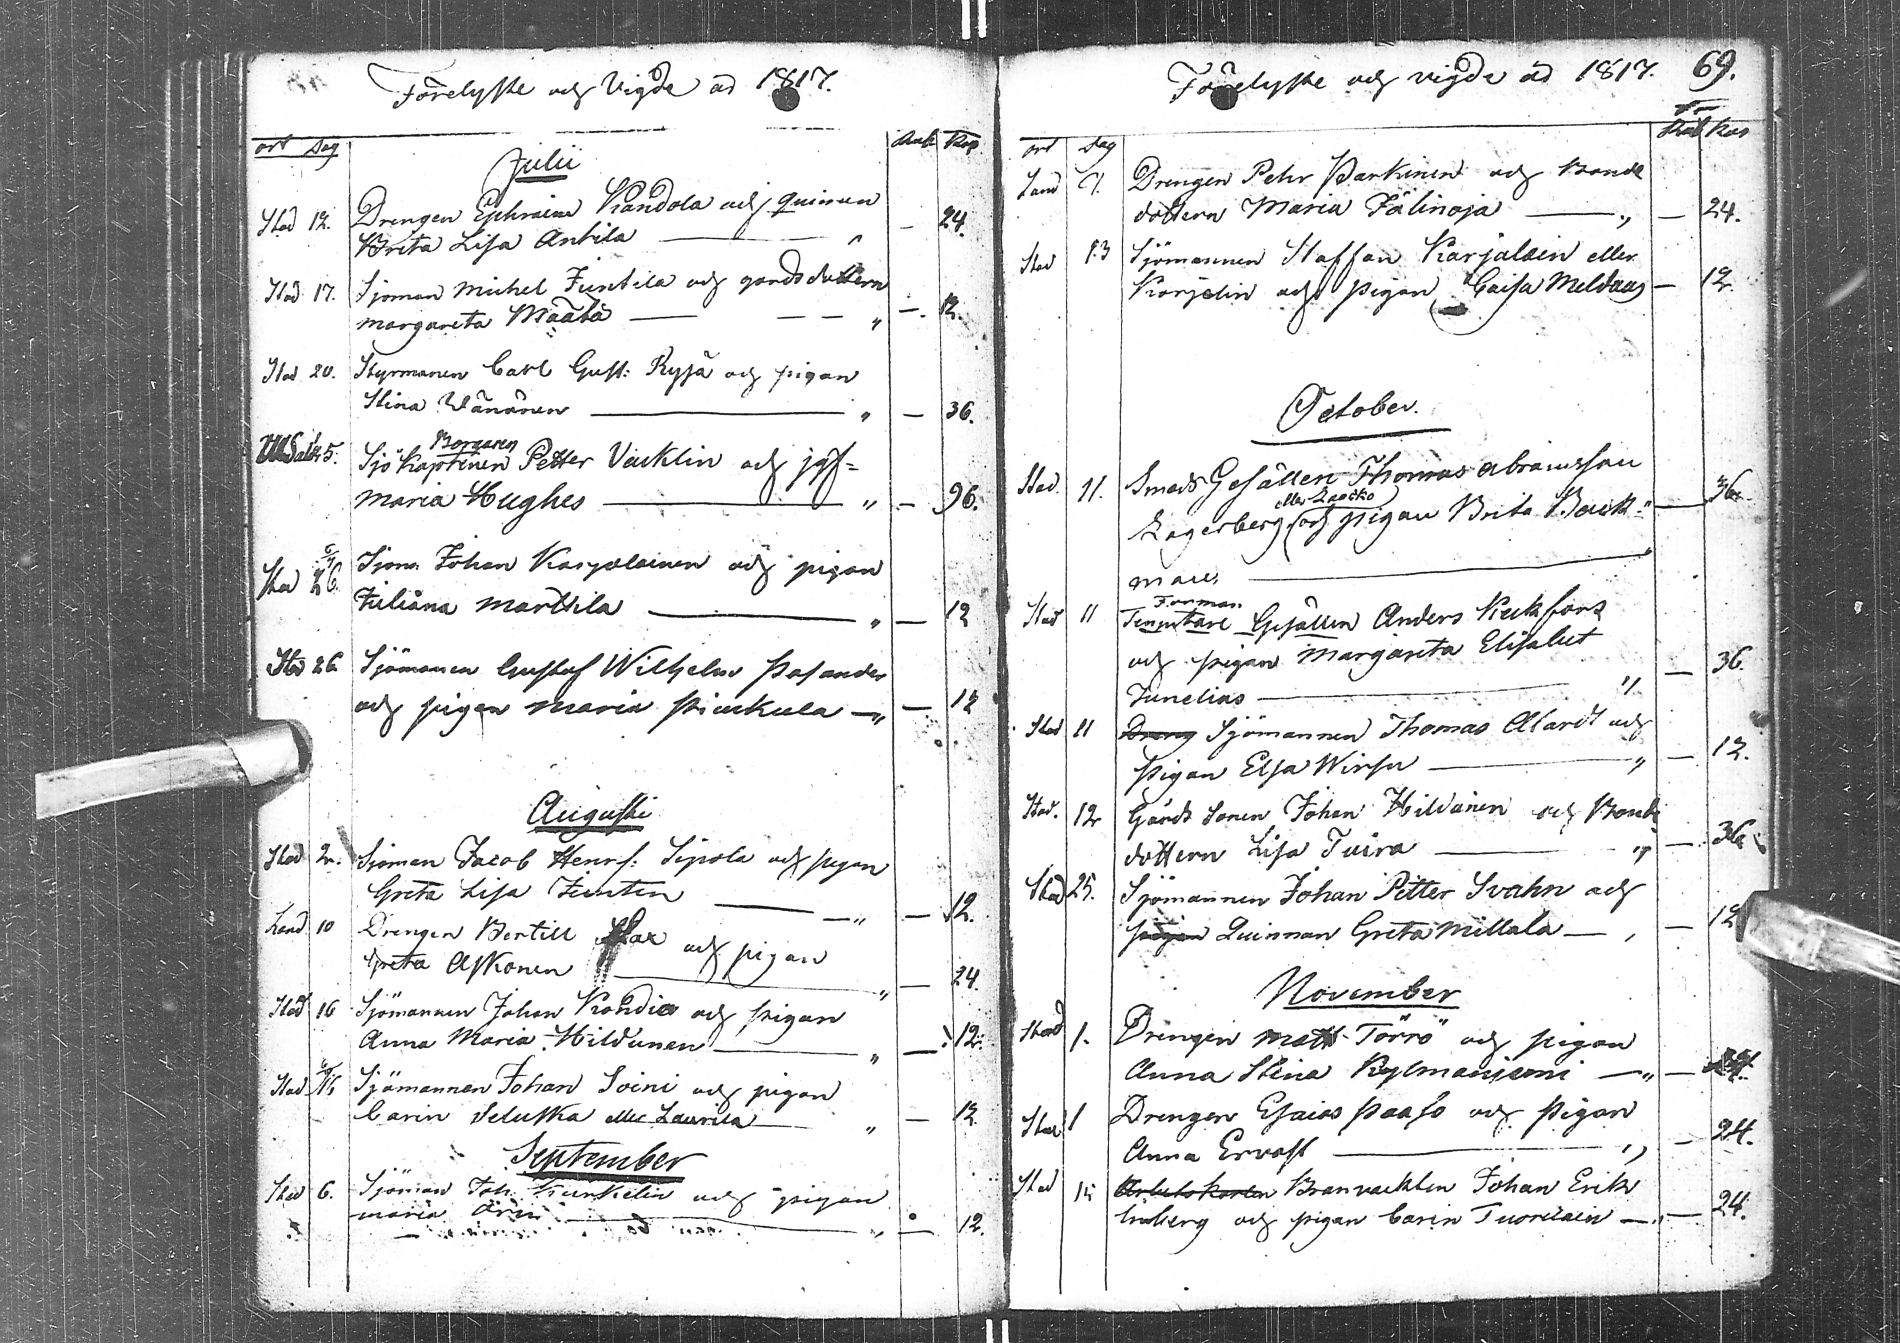 Förelyste och Vigde åd 1817.
ort Dag Rub Kop
Julii
Stad 12. Drengen Ephraim Kandola och quinnan
Brita Lisa Antila — 24.
Stad 17. Sjöman Michel Juntila och gårdsdottern
Margareta Määttä — 12.
Stad 20. Styrmannen Carl Gust: Ryjä och pigan
Stina Wänänen — " — 36.
Borgaren
25. Sjö Kaptenen Petter Vacklin och jgf=
Maria Hughes — " — 96.
Stad 26. Sjöm. Johan Karjalainen och pigan
Juliana Marttila — " — 12
Stad 26 Sjömannen Gustaf Wilhelm Pasander
och pigan Maria Pinckula — " — 12
Augusti
Stad 2. Sjöman Jacob Henrs: Sipola och pigan
Greta Lisa Junten — " — 12.
Land 10 Drengen Bertill och pigan
Greta Askonen — " — 24
Stad 16 Sjömannen Johan Kohdia och pigan
Anna Maria Hildunen — " — 12.
Stad Sjömannen Johan Soini och pigan
Carin Seluska eller Laurila — " — 12
September
Stad 6. Sjöman Joh. Kunkelin och pigan
Maria — " — 12.
Förelyste och vigde åd 1817. 69.
ort Dag Rub Kop
Land 7. Drengen Pehr Parkinen och Bonde
dottern Maria Jälinoja — " — 24.
Stad 13 Sjömannen Staffan Karjalain eller
Karjelin och pigan Caisa Meldaas — 12.
October.
Stad 11. Smeds Gesällen Thomas Abramsson
eller
Lagerberg och pigan Brita Back= — 36.
man —
Forman
Stad 11 Gesällen Anders Keckfors
och pigan Margareta Elisabet
Junelius — " — 36.
Stad 11 Dreng Sjömannen Thomas Alardt och
Pigan Elsa Wirsu — " — 12.
Stad. 12 Gårds Sonen Johan Hildunen och Bonde
dottern Lisa Tuira — " — 36
Stad 25. Sjömannen Johan Petter Svahn och
pigan Quinnan Greta Mittala — " — 12
November
Stad 1. Drengen Matts Törrö och pigan
Anna Stina Kylmäniemi — " — 24.
Stad 1 Drengen Esaias Paaso och Pigan
Anna Ervast — " — 24.
Stad Branvackten Johan Erik
Enberg och pigan Carin Tuorilain — " — 24.